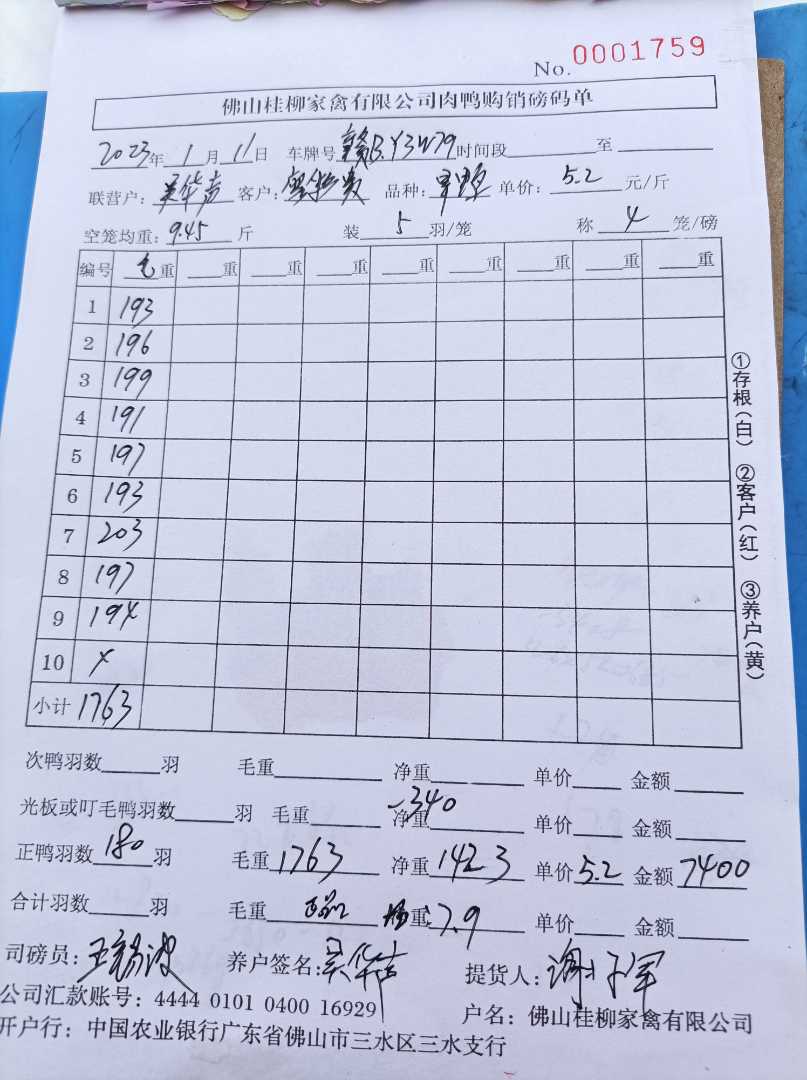 No. 0001759
佛山桂柳家禽有限公司肉鸭购销磅码单
2023年 1月 11日 车牌号赣B.Y3W79时间段 至
联营户：吴华声 客户： 品种： 单价：5.2元/斤
空笼均重：9.45斤 装5羽/笼 称4笼/磅
编号 毛重 重 重 重 重 重 重 重 重
1 193
2 196
3 199
4 191
5 197
6 193
7 203
8 197
9 194
10 x
小计 1763
①存根(白) ②客户(红) ③养户(黄)
次鸭羽数 羽 毛重 净重 单价 金额
-340
光板或叮毛鸭羽数 羽 毛重 净重 单价 金额
正鸭羽数180羽 毛重1763 净重1423 单价5.2 金额7400
合计羽数 羽 毛重 重7.9 单价 金额
司磅员： 养户签名：吴华声 提货人：
公司汇款账号：4444 0101 0400 16929 户名：佛山桂柳家禽有限公司
开户行：中国农业银行广东省佛山市三水区三水支行